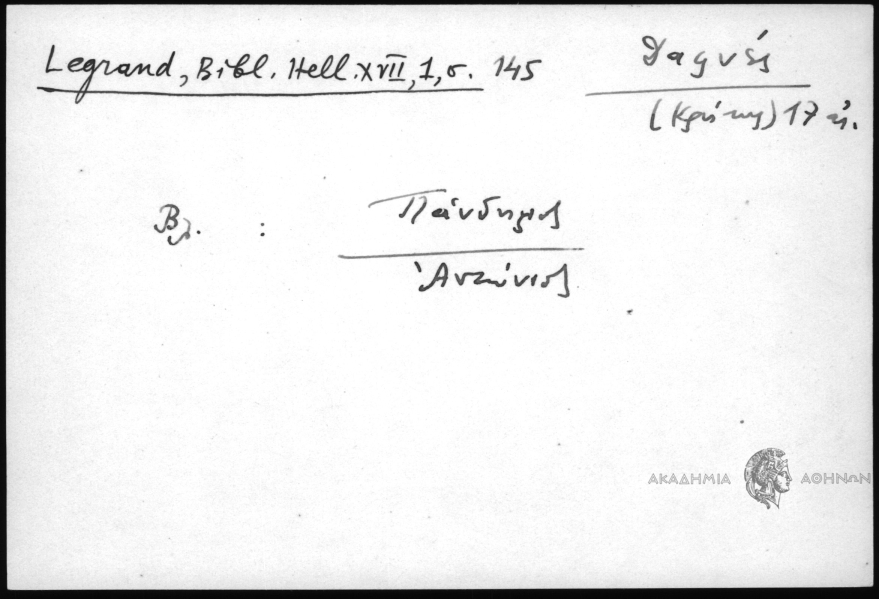 Legrand, Bibl. Hell. XVII, 1, σ. 145
(Κρήτης) 17 αἰ.
Βλ. :
Πάνδημος
Ἀντώνιος
ΑΚΑΔΗΜΙΑ ΑΘΗΝΩΝ